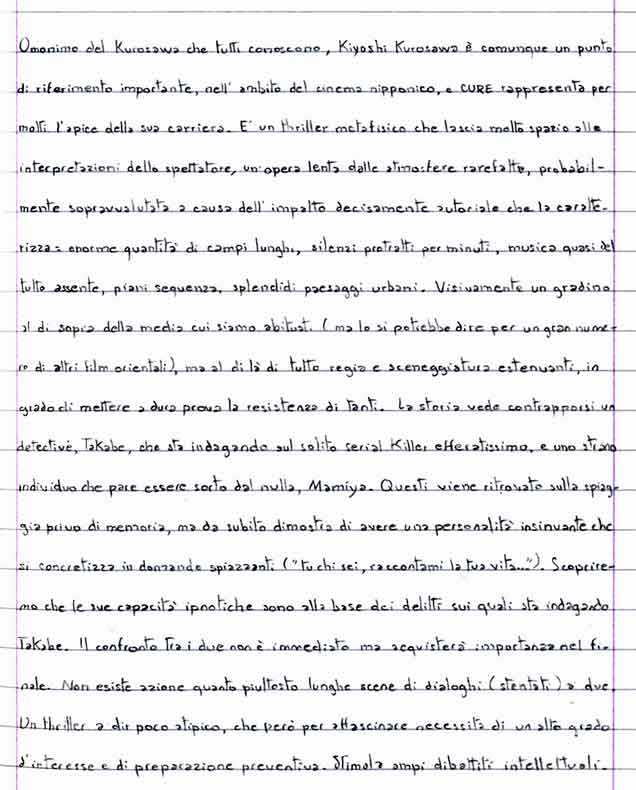 Omonimo del Kurosawa che tutti conoscono, Kiyoshi Kurosawa è comunque un punto
di riferimento importante, nell'ambito del cinema nipponico, e CURE rappresenta per
molti l'apice della sua carriera. E' un thriller metafisico che lascia molto spazio alle
interpretazioni dello spettatore, un'opera lenta dalle atmosfere rarefatte, probabil-
mente sopravvalutata a causa dell'impatto decisamente autoriale che la caratte-
rizza: enorme quantità di campi lunghi, silenzi protratti per minuti, musica quasi del
tutto assente, piani sequenza, splendidi paesaggi urbani. Visivamente un gradino
al di sopra della media cui siamo abituati (ma lo si potrebbe dire per un gran nume-
ro di altri film orientali), ma al di là di tutto regia e sceneggiatura estenuanti, in
grado di mettere a dura prova la resistenza di tanti. La storia vede contrapporsi un
detective, Takabe, che sta indagando sul solito serial killer efferatissimo, e uno strano
individuo che pare essere sorto dal nulla, Mamiya. Questi viene ritrovato sulla spiag-
gia privo di memoria, ma da subito dimostra di avere una personalità insinuante che
si concretizza in domande spiazzanti ("tu chi sei, raccontami la tua vita..."). Scoprire-
mo che le sue capacità ipnotiche sono alla base dei delitti sui quali sta indagando
Takabe. Il confronto tra i due non è immediato ma acquisterà importanza nel fi-
nale. Non esiste azione quanto piuttosto lunghe scene di dialoghi (stentati) a due.
Un thriller a dir poco atipico, che però per affascinare necessita di un alto grado
d'interesse e di preparazione preventiva. Stimola ampi dibattiti intellettuali.